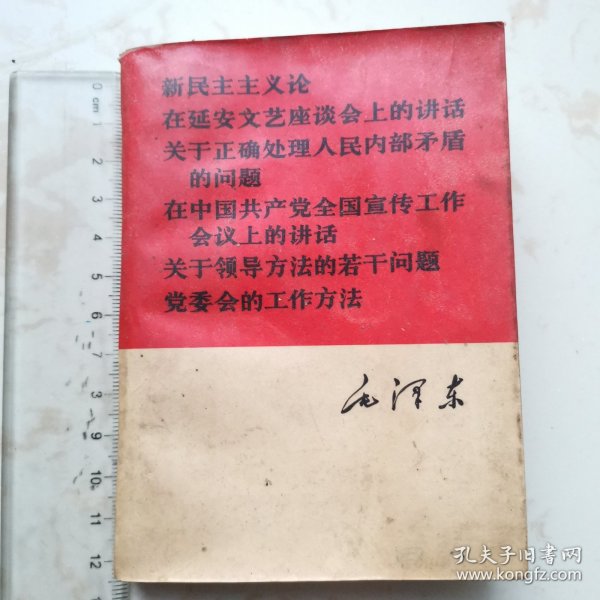 新民主主义论
在延安文艺座谈会上的讲话
关于正确处理人民内部矛盾
的问题
在中国共产党全国宣传工作
会议上的讲话
关于领导方法的若干问题
党委会的工作方法
毛泽东
0 cm 1 2 3 4 5 6 7 3 9 10 11 12
孔夫子旧书网
www.kongfz.com